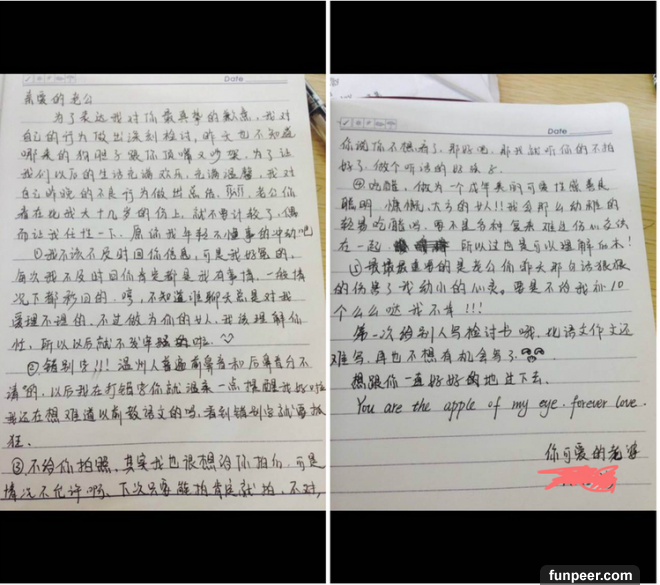 Date
亲爱的老公
为了表达我对你最真挚的歉意,我对
自己的行为做出深刻检讨。昨天也不知道
哪来的狗胆子跟你顶嘴又吵架,为了让
我们以后的生活充满欢乐,充满温馨,我对
自己昨晚的不良行为做出总结,所以,老公你
看在比我大十几岁的份上,就不要计较了,偶
而让我任性一下。原谅我年轻不懂事的冲动吧
①我不该不及时回你信息,可是我好冤的,
每次我不及时回你肯定都是我有事情,一般情
况下都秒回的,哼,不知道谁聊天总是对我
爱理不理的,不过做为你的女人,我该理解你
忙,所以以后就不我啦
②错别字!!!温州人普遍前鼻音和后鼻音分不
清的,以后我在打错字你就温柔一点提醒我好
我还在想难道以前教语文的吗,看到错别字就要抓
狂.
③不给你拍照,其实我也很想给你拍的,可是
情况不允许啊,下次只要能拍肯定就拍,不对,
Date
你说你不想看了,那好吧,那我就听你的不拍
好了,做个听话的好孩子.
④吃醋,做为一个成年来的可爱性感善良
聪明 慷慨,大方的女人!!我会那么幼稚的
轻易吃醋吗,要不是多种复杂难过伤心交织
在一起 所以过也是可以理解的不!
⑤最最最重要的是老公你昨天那句话狠狠
的伤害了我幼小的心灵。要是不给我补10
个么么哒我不幸!!!
第一次给别人写检讨书哦,比语文作文还
难写,再也不想有机会写了
想跟你一直好好的地过下去.
You are the apple of my eye. forever love.
你可爱的老婆
funpeer.com